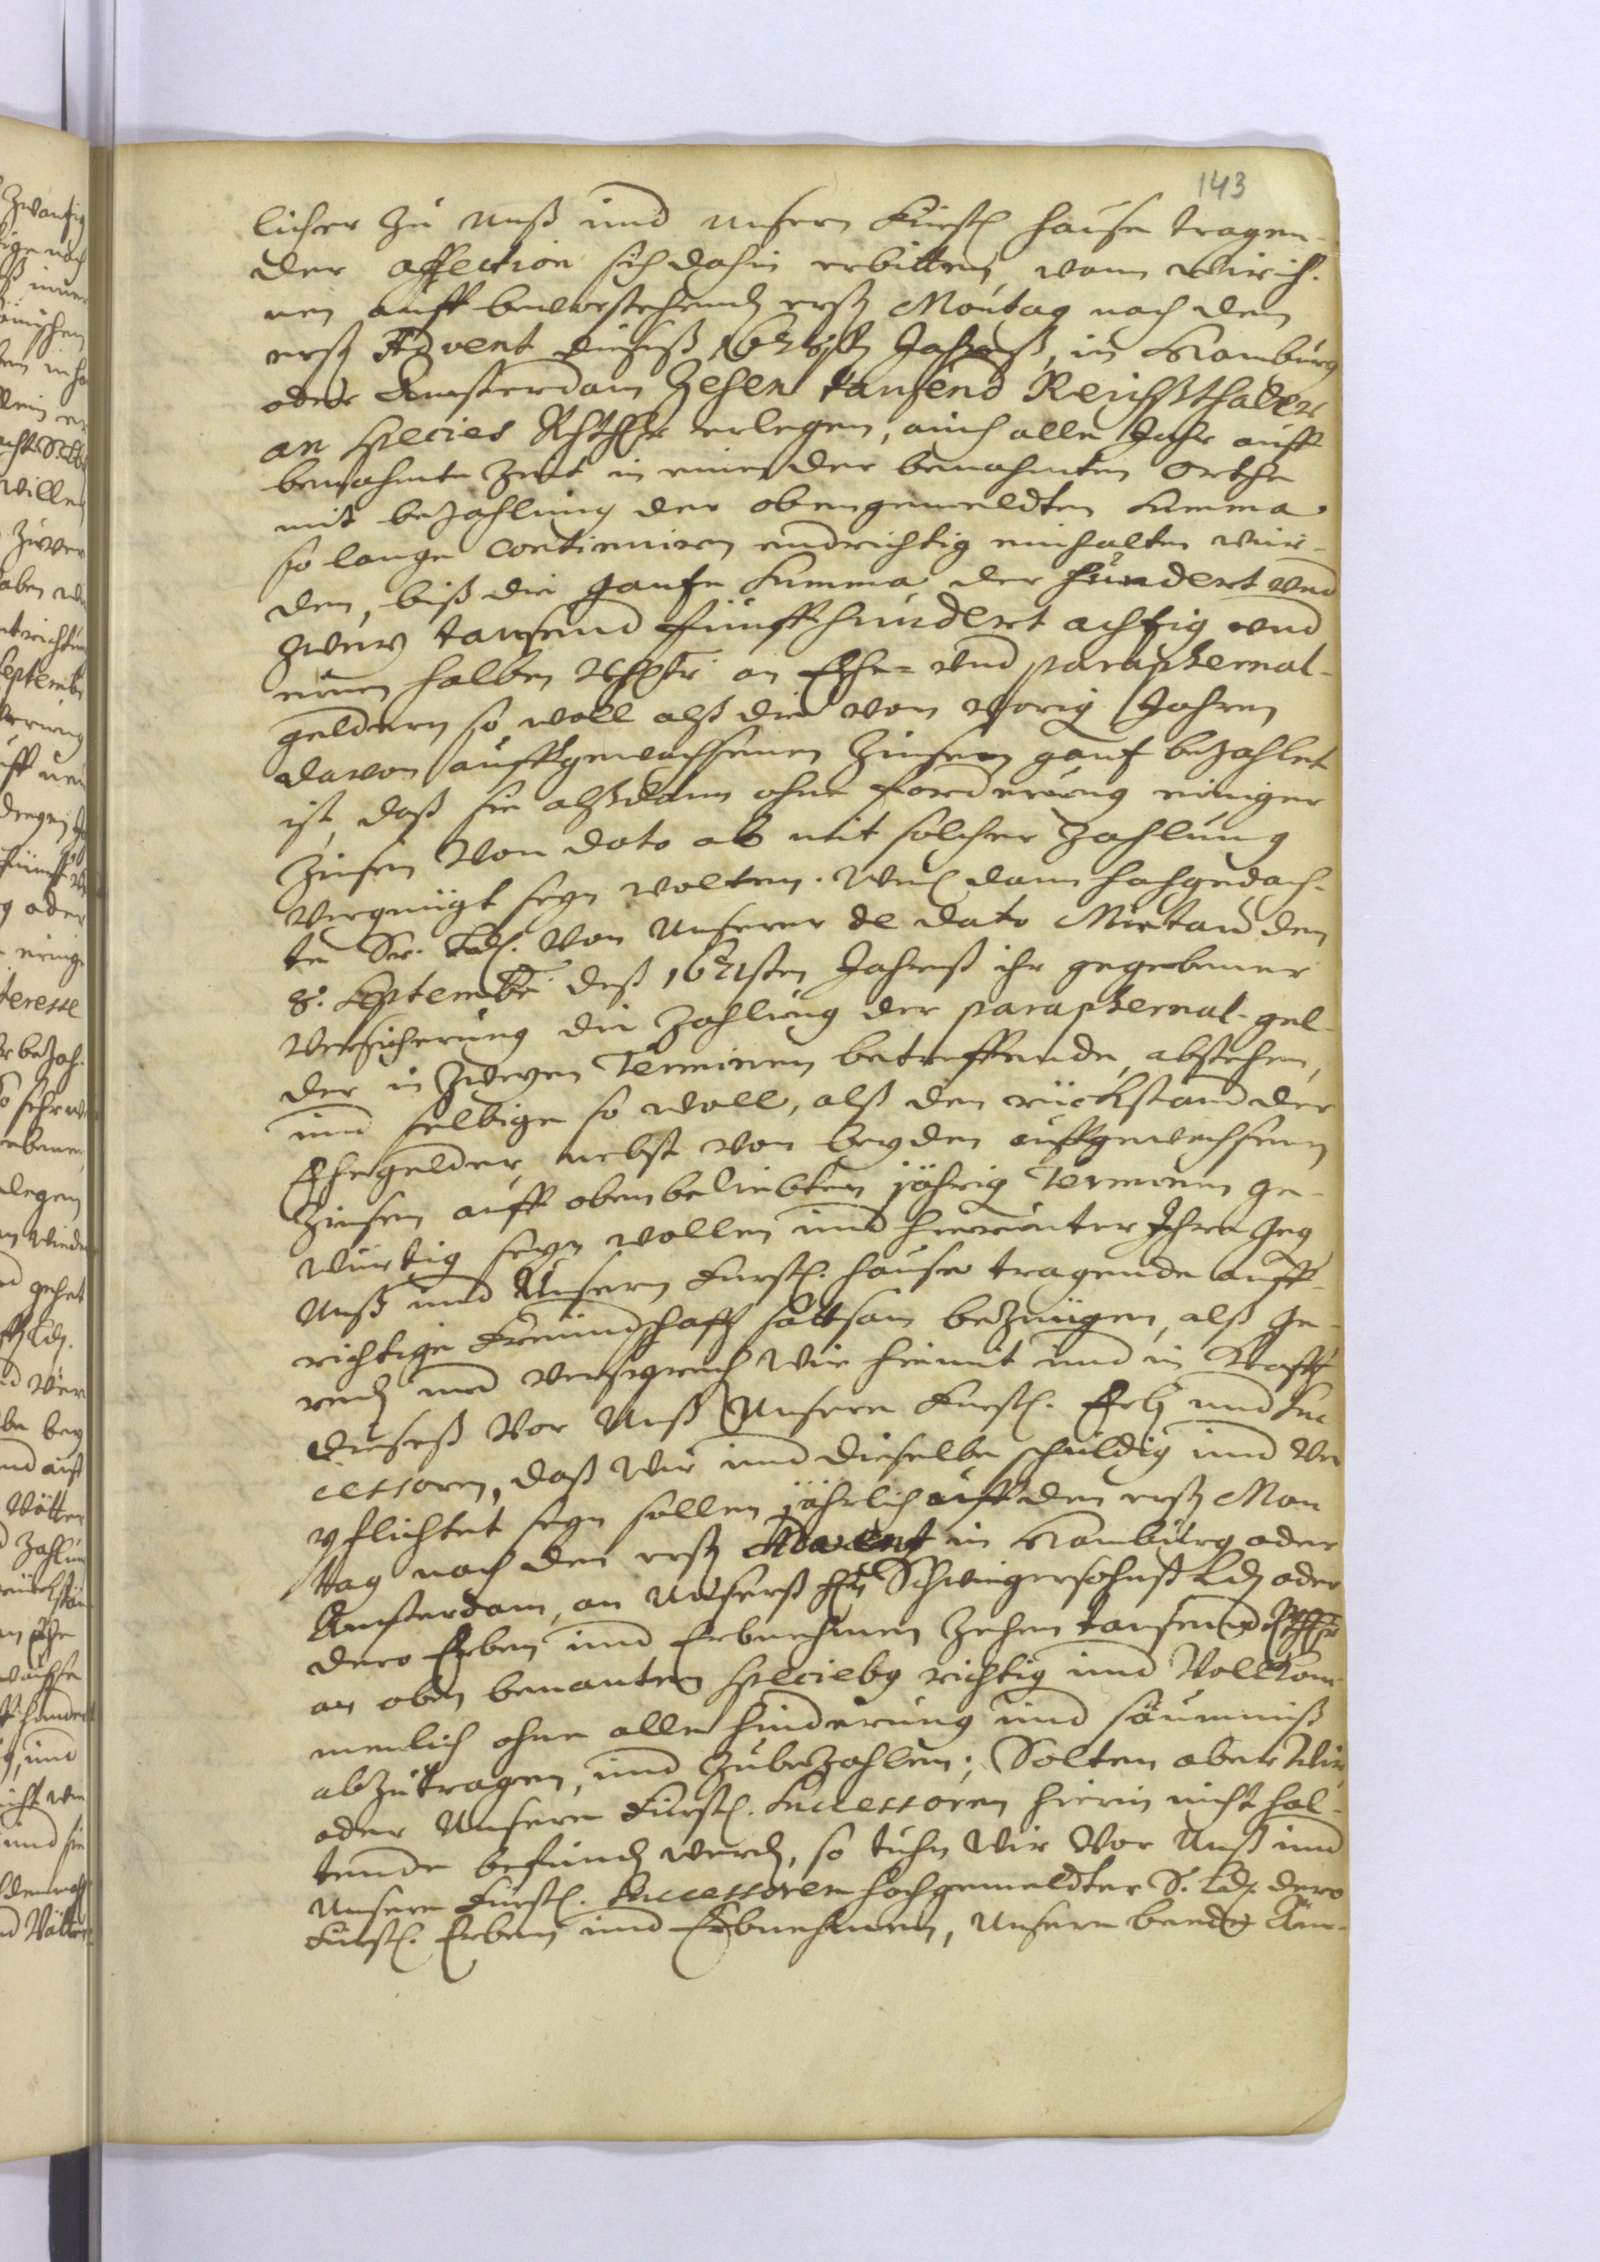 143
licher zu unß und unsern Fürstl hause tragen-
der affection sich dahin erbitten, wann wir ih-
nen auff bevorstehend erst Montag nach dem
erst Advent dieses Jahreß, in Hamburg
oder Amsterdam Zehen tausend Reichßthaler
an species Rthlr erlegen, auch alle Jahr auff
benahmte Zeit in einer der benahmten Orthe
mit bezahlung der obengemeldten Summa
so lange continuiren undrichtig einhalten wür-
den, biß die gantze Summa der hundert und
zwey tausend fünffhundert achtzig und
einen halben Rthlr an Ehe- und paraphernal-
geldern so woll alß die von vorig Jahren
davon auffgewachsenen Zinsen gantz bezahlet
ist, daß sie alßdann ohne forderung einiger
Zinsen von dato ab mit solcher Zahlung
vergnügt seyn wolten. Weil dann hochgedach-
te Sr. Ldl. von unserer de dato Mietau den
8. Septembr deß 1671sten Jahreß ihr gegebener
Versicherung die Zahlung der paraphernal-gel-
der in zweyen Terminen betreffende, abstehen,
und selbige so woll, alß den rückstand der
Ehegelder, nebst von beyden auffgewachsenen
Zinsen auff obenbeliebten jährig Terminen ge-
wärtig seyn wollen und hierunter Ihre geg
Unß und Unsern Fürstl. hause tragende auff-
richtige Freundschafft sattsam bezeugen, alß ge-
red und versprech wir hiemit und in Krafft
dieseß vor Unß Unsere Fürstl. Erb und Suc
cessoren, daß wir und dieselbe schuldig und ver
pflichtet seyn sollen jährlich auff den erst Mon
tag nach den erst Advent in Hamburg oder
Amsterdam, an Unserß Schwiegersohnß Ld oder
dero Erben und Erbnehmen Zehen tausend Rthlr
an oben benanten speciebg richtig und Vollkom-
menlich ohne alle hinderung und säumniß
abzutragen, und zubezahlen; Solten aber Wir
oder Unsere Fürstl. Successoren hierin nicht hal-
tende befund werd, so tuhn Wir vor Unß und
Unsere Fürstl. Successoren hochgemeldter S. Ld. dero
Fürstl. Erben und Erbnehmen, Unsere beede Äm-